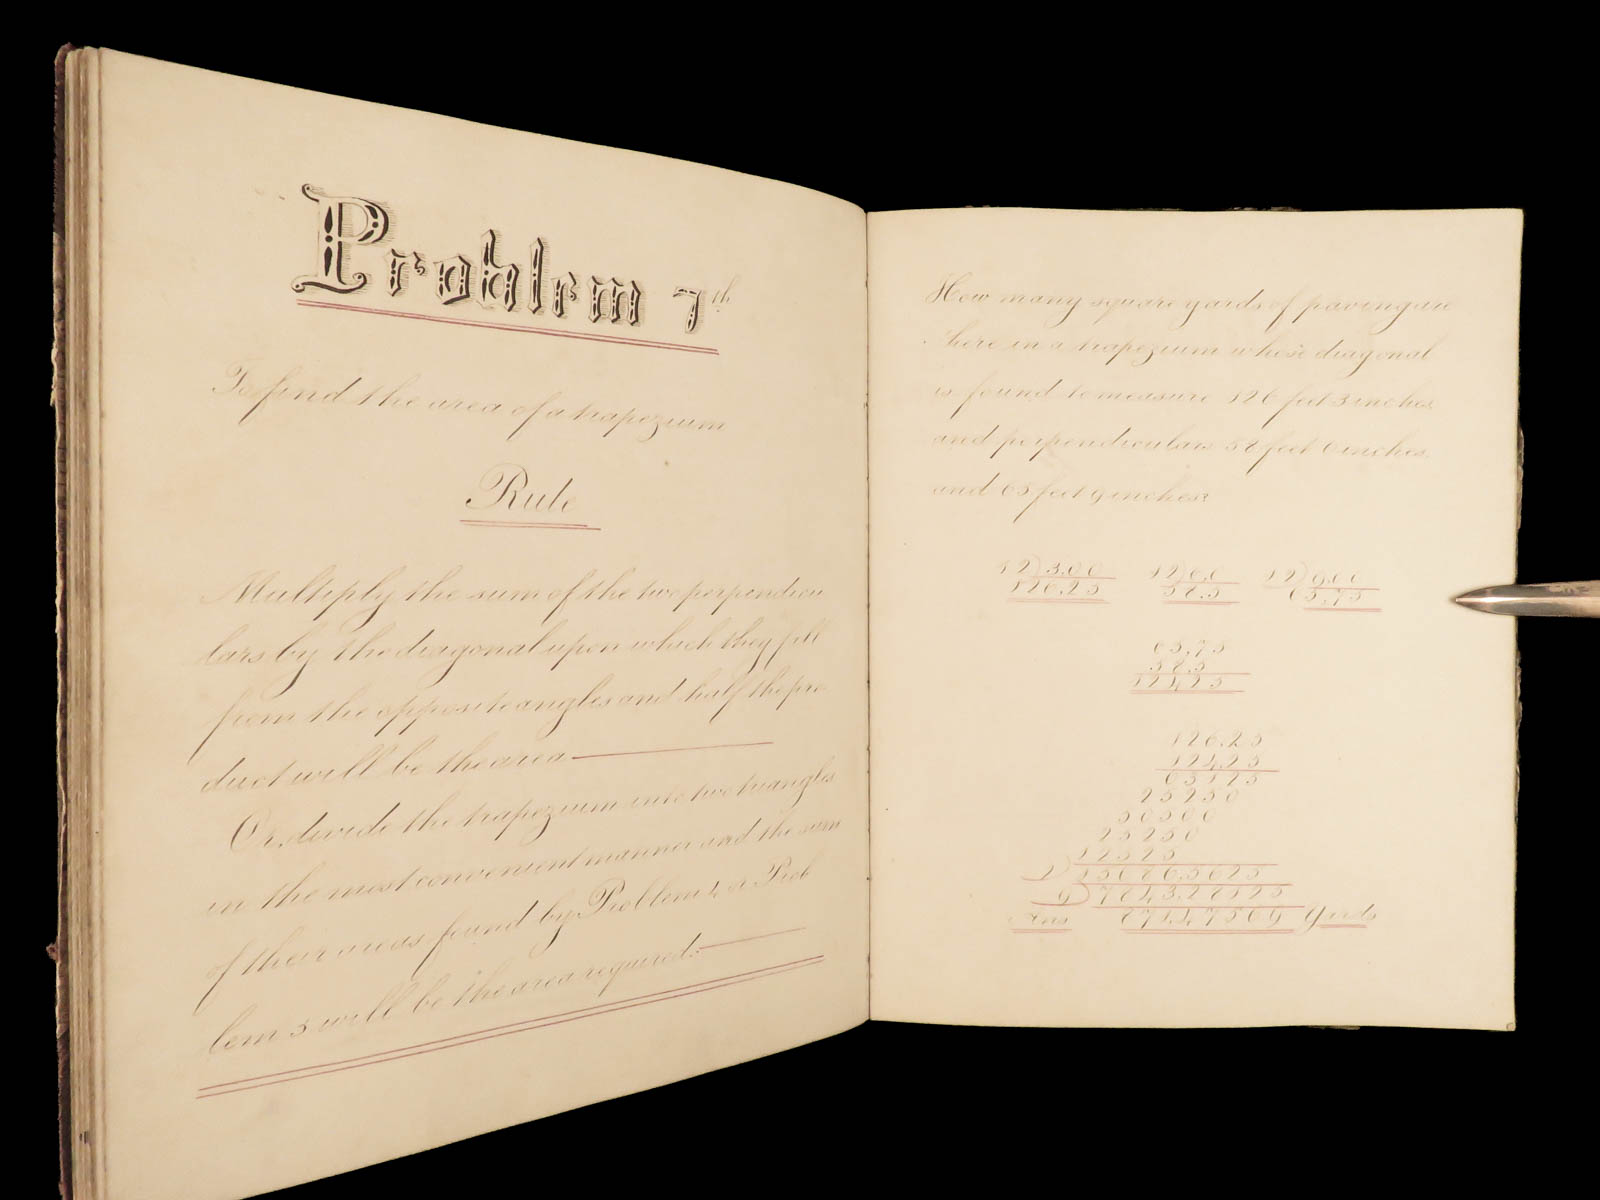 Problem 7th
To find the area of a trapezium
Rule
Multiply the sum of the two perpendicu
lars by the diagonal upon which they fill
from the opposite angles and half the pro
duct will be the area
Or, divide the trapezium into two triangles
in the most convenient manner and the sum
of their areas found by Problem 4 or Prob
lem 5 will be the area required:
How many square yards of paving are
there in a trapezium whose diagonal
is found to measure 126 feet 3 inches
and perpendiculars 58 feet 6 inches
and 65 feet 9 inches?
12)3.00 12)6.0 12)9.00
126.25 58.5 65.75
65.75
58.5
124.25
126.25
124.25
63125
25250
50500
25250
12525
2)15686.5625
9)7843.28125
Ans 871.47569 Yards